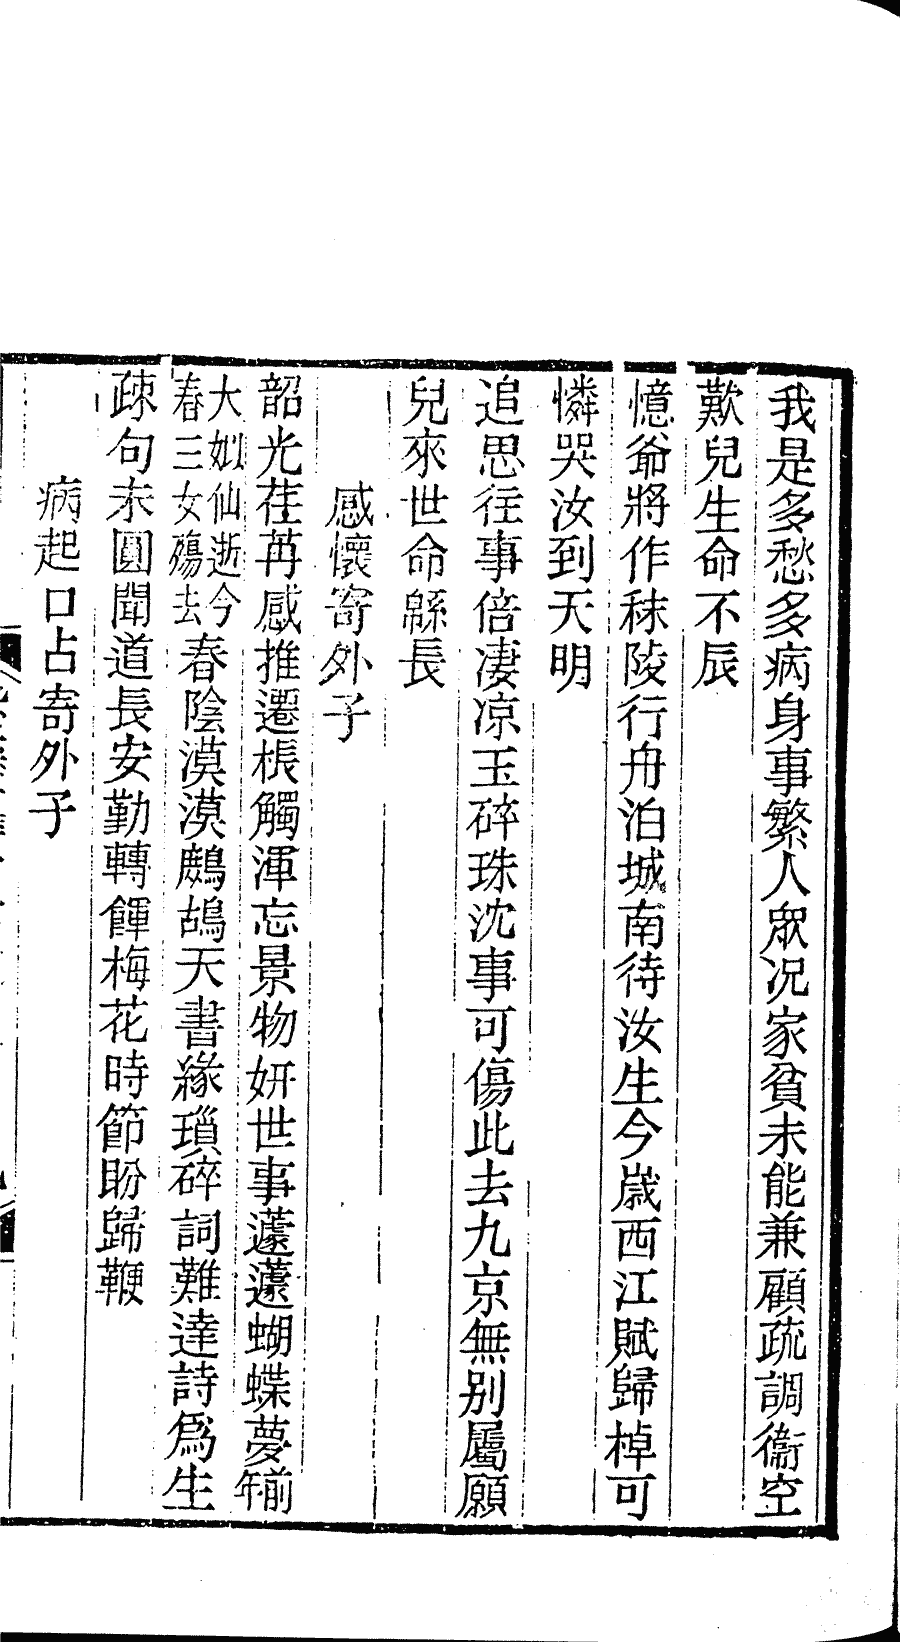 我是多愁多病身事繁人眾况家貧未能兼顧疏調衞空
歎兒生命不辰
憶爺將作秣陵行舟泊城南待汝生今歲西江賦歸棹可
憐哭汝到天明
追思往事倍凄凉玉碎珠沈事可傷此去九京無别屬願
兒來世命緜長
感懷寄外子
韶光荏苒感推遷棖觸渾忘景物妍世事蘧蘧蝴蝶夢前年
大姒仙逝今春三女殤去春陰漠漠鷓鴣天書緣瑣碎詞難達詩爲生
疎句未圓聞道長安勤轉餫梅花時節盼歸鞭
病起口占寄外子